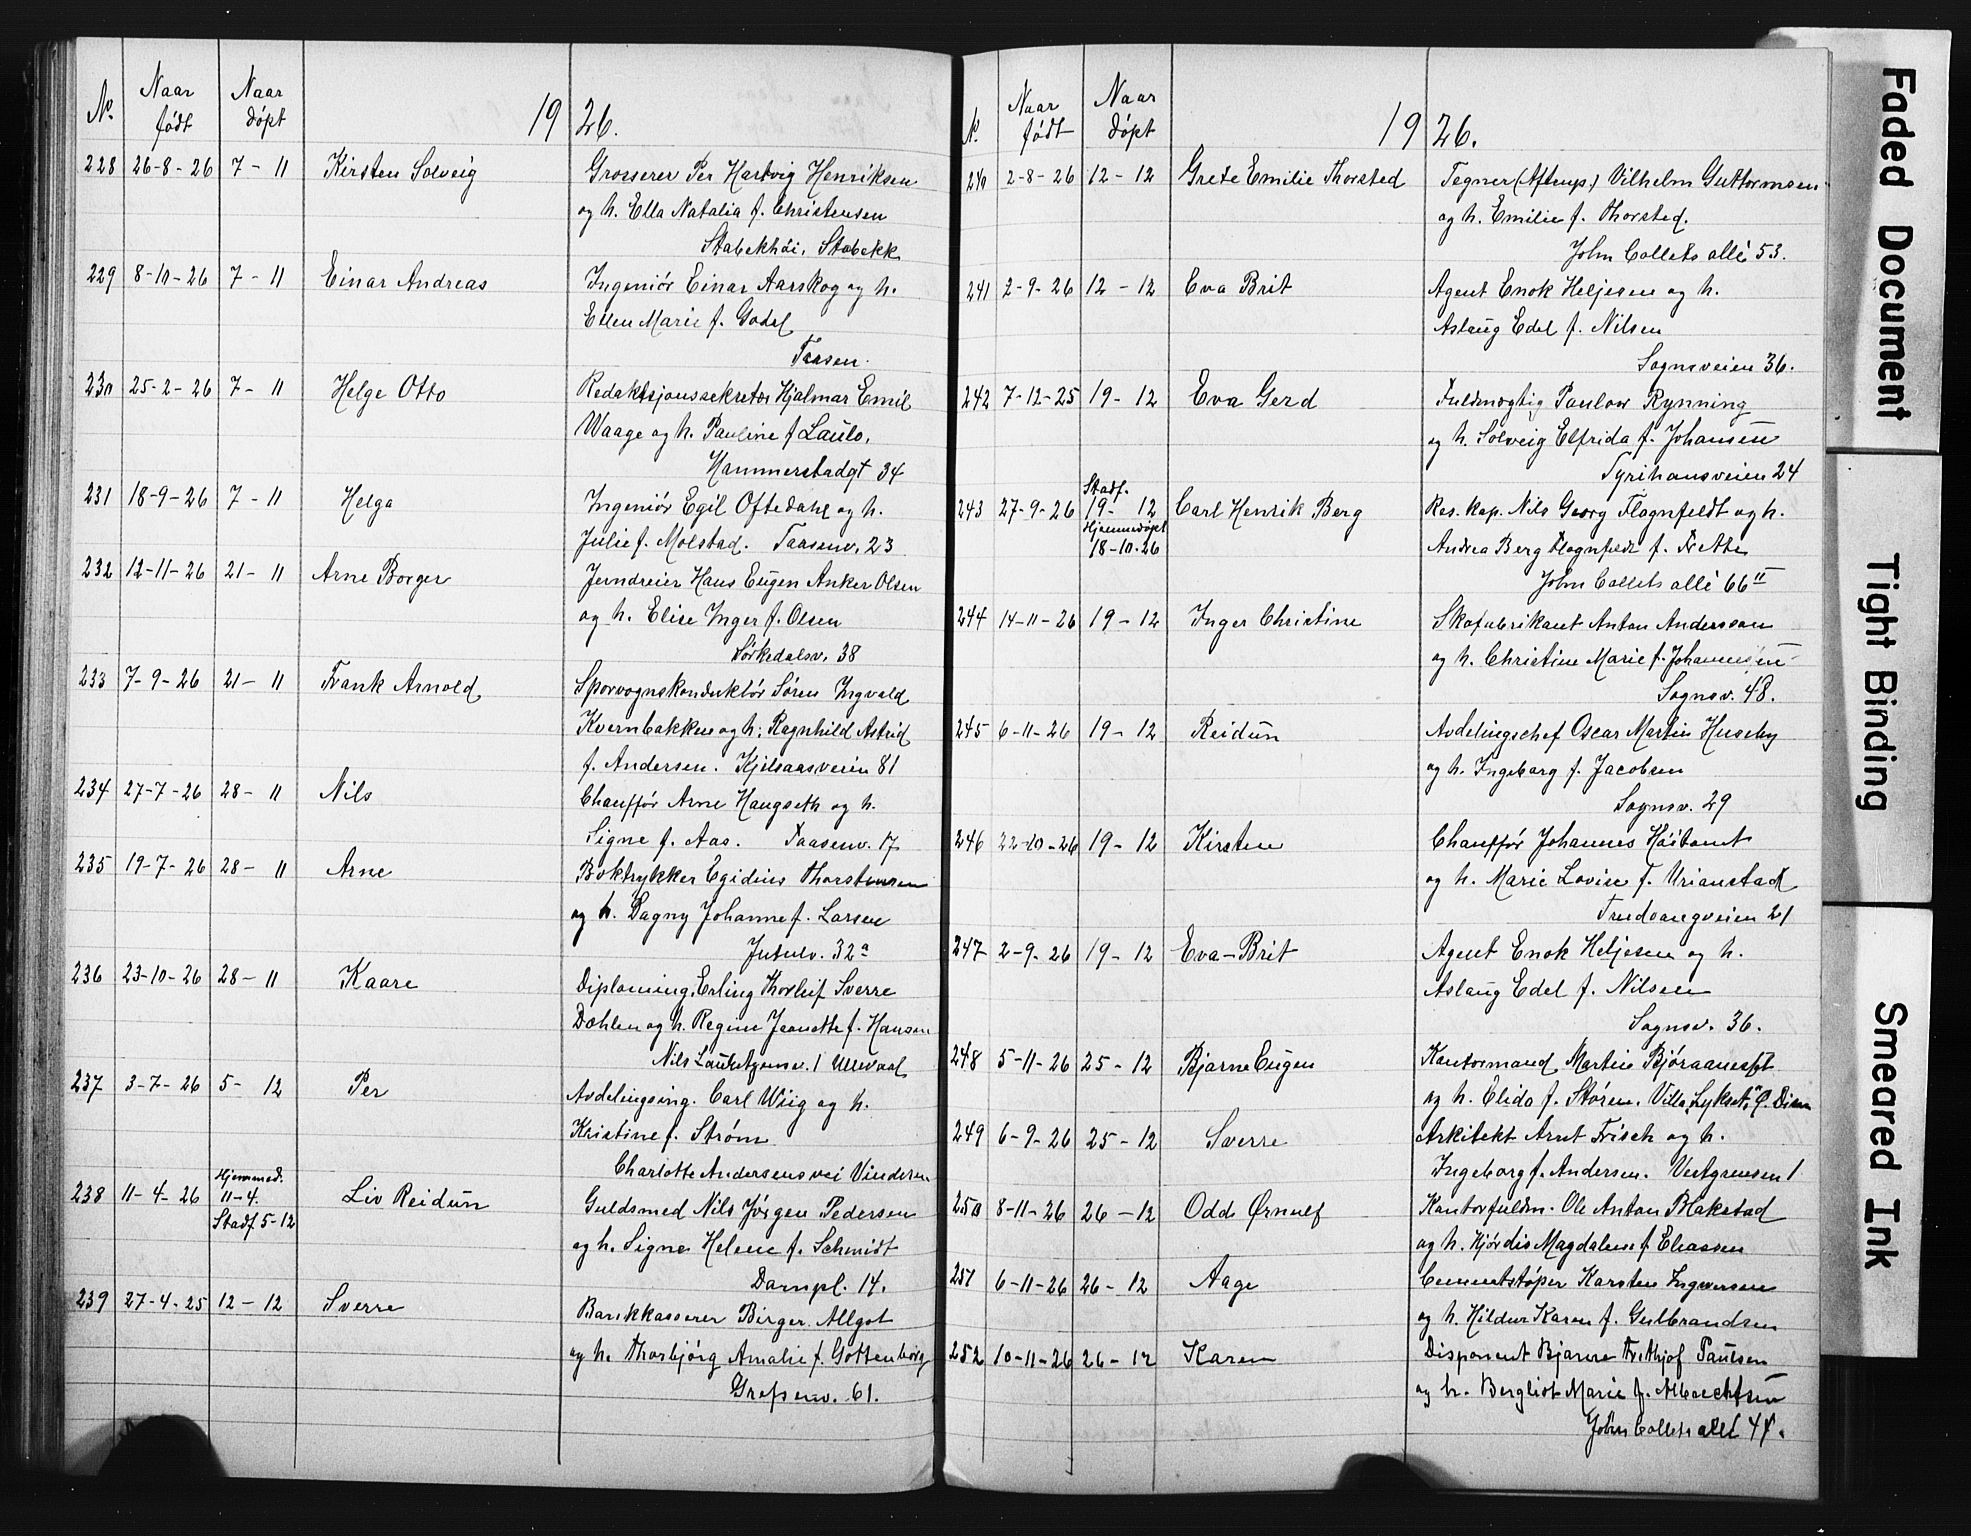 No. Naar født Naar døpt 1926.
228 26-8-26 7-11 Kirsten Solveig Grosserer Per Hartvig Henriksen
og h. Ella Natalia f. Christensen
Stabekhøi, Stabekk
229 8-10-26 7-11 Einar Andreas Ingeniør Einar Aarskog og h.
Ellen Marie f. Godel
Taasen.
230 25-2-26 7-11 Helge Otto Redaktsjonssekretær Hjalmar Emil
Waage og h. Pauline f Laulo.
Hammerstadgt 34
231 18-9-26 7-11 Helga Ingeniør Egil Oftedahl og h.
Julie f. Molstad. Taasenv. 23
232 12-11-26 21-11 Arne Borger Jerndreier Hans Eugen Anker Olsen
og h. Elise Inger f. Olsen
Sørkedalsv. 38
233 7-9-26 21-11 Frank Arnold Sporvognskonduktør Søren Ingvald
Kvernbakken og h. Ragnhild Astrid
f. Andersen. Kjelsaasveien 81
234 27-7-26 28-11 Nils Chauffør Arne Haugseth og h.
Signe f. Aas. Taasenv. 17
235 19-7-26 28-11 Arne Boktrykker Egidius Thorstensen
og h. Dagny Johanne f. Larsen
Jutulv. 32a
236 23-10-26 28-11 Kaare Diploming. Erling Thorleif Sverre
Dæhlen og h. Regine Jeanette f. Hansen
Nils Lauritzensv. 1 Ullevaal
237 3-7-26 5-12 Per Avdelingsing. Carl Wiig og h.
Kristine f. Strøm
Charlotte Andersens vei Vinderen
Hjemmed.
238 11-4-26 11-4. Liv Reidun Guldsmed Nils Jørgen Pedersen
Stadf. 5-12
og h. Signe Helene f. Schmidt
Dampl. 14.
239 27-4-25 12-12 Sverre Bankkasserer Birger Allgot
og h. Thorbjørg Amalie f. Gottenborg
Grefsenv. 61.
N. Naar født Naar døpt 1926.
240 2-8-26 12-12 Grete Emilie Thorsted Tegner (Aftenp.) Vilhelm Guttormsen
og h. Emilie f. Thorsted.
John Collets allé 53.
241 2-9-26 12-12 Eva Brit Agent Enok Heljesen og h.
Aslaug Edel f. Nilsen
Sognsveien 36.
242 7-12-25 19-12 Eva Gerd Fuldmægtig Paulow Rynning
og h. Solveig Elfrida f. Johansen
Tyrihansveien 24
Stadf.
243 27-9-26 19-12 Carl Henrik Berg Res. kap. Nils Georg Flognfeldt og h.
Hjemmedøpt
18-10-26
Andrea Berg Flognfeldt f. Trætte
John Collets allé 66 II
244 14-11-26 19-12 Inger Christine Skofabrikant Anton Andersson
og h. Christine Marie f. Johannesen
Sognsv. 48.
245 6-11-26 19-12 Reidun Avdelingschef Oscar Martin Huseby
og h. Ingeborg f. Jacobsen
Sognsv. 29
246 22-10-26 19-12 Kirsten Chauffør Johannes Høitomt
og h. Marie Lovise f. Urianstad
Trudvangveien 21
247 2-9-26 19-12 Eva-Brit Agent Enok Heljesen og h.
Aslaug Edel f. Nilsen
Sognsv. 36.
248 5-11-26 25-12 Bjarne Eugen Kontormand Martin
og h. Elida f. Støren. Villa Lykset,
249 6-9-26 25-12 Sverre Arkitekt Arnt Frisch og h.
Ingeborg f. Andersen. Vestgrensen 1
250 8-11-26 26-12 Odd Ørnulf Kontorfuldm. Ole Anton Blakstad
og h. Hjørdis Magdalene f. Eliassen
251 6-11-26 26-12 Aage Cementstøper Karsten Ingwersen
og h. Hildur Karen f. Gulbrandsen
252 10-11-26 26-12 Karen Disponent Bjarne Frithjof Paulsen
og h. Bergliot Marie f. Albrechtsen
John Collets allé 41.
Faded Document
Tight Binding
Smeared Ink